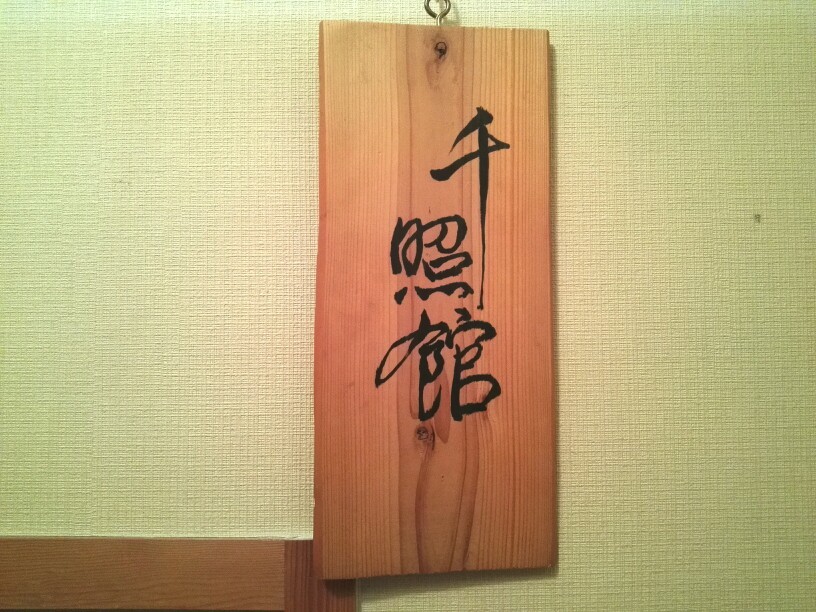 千照館